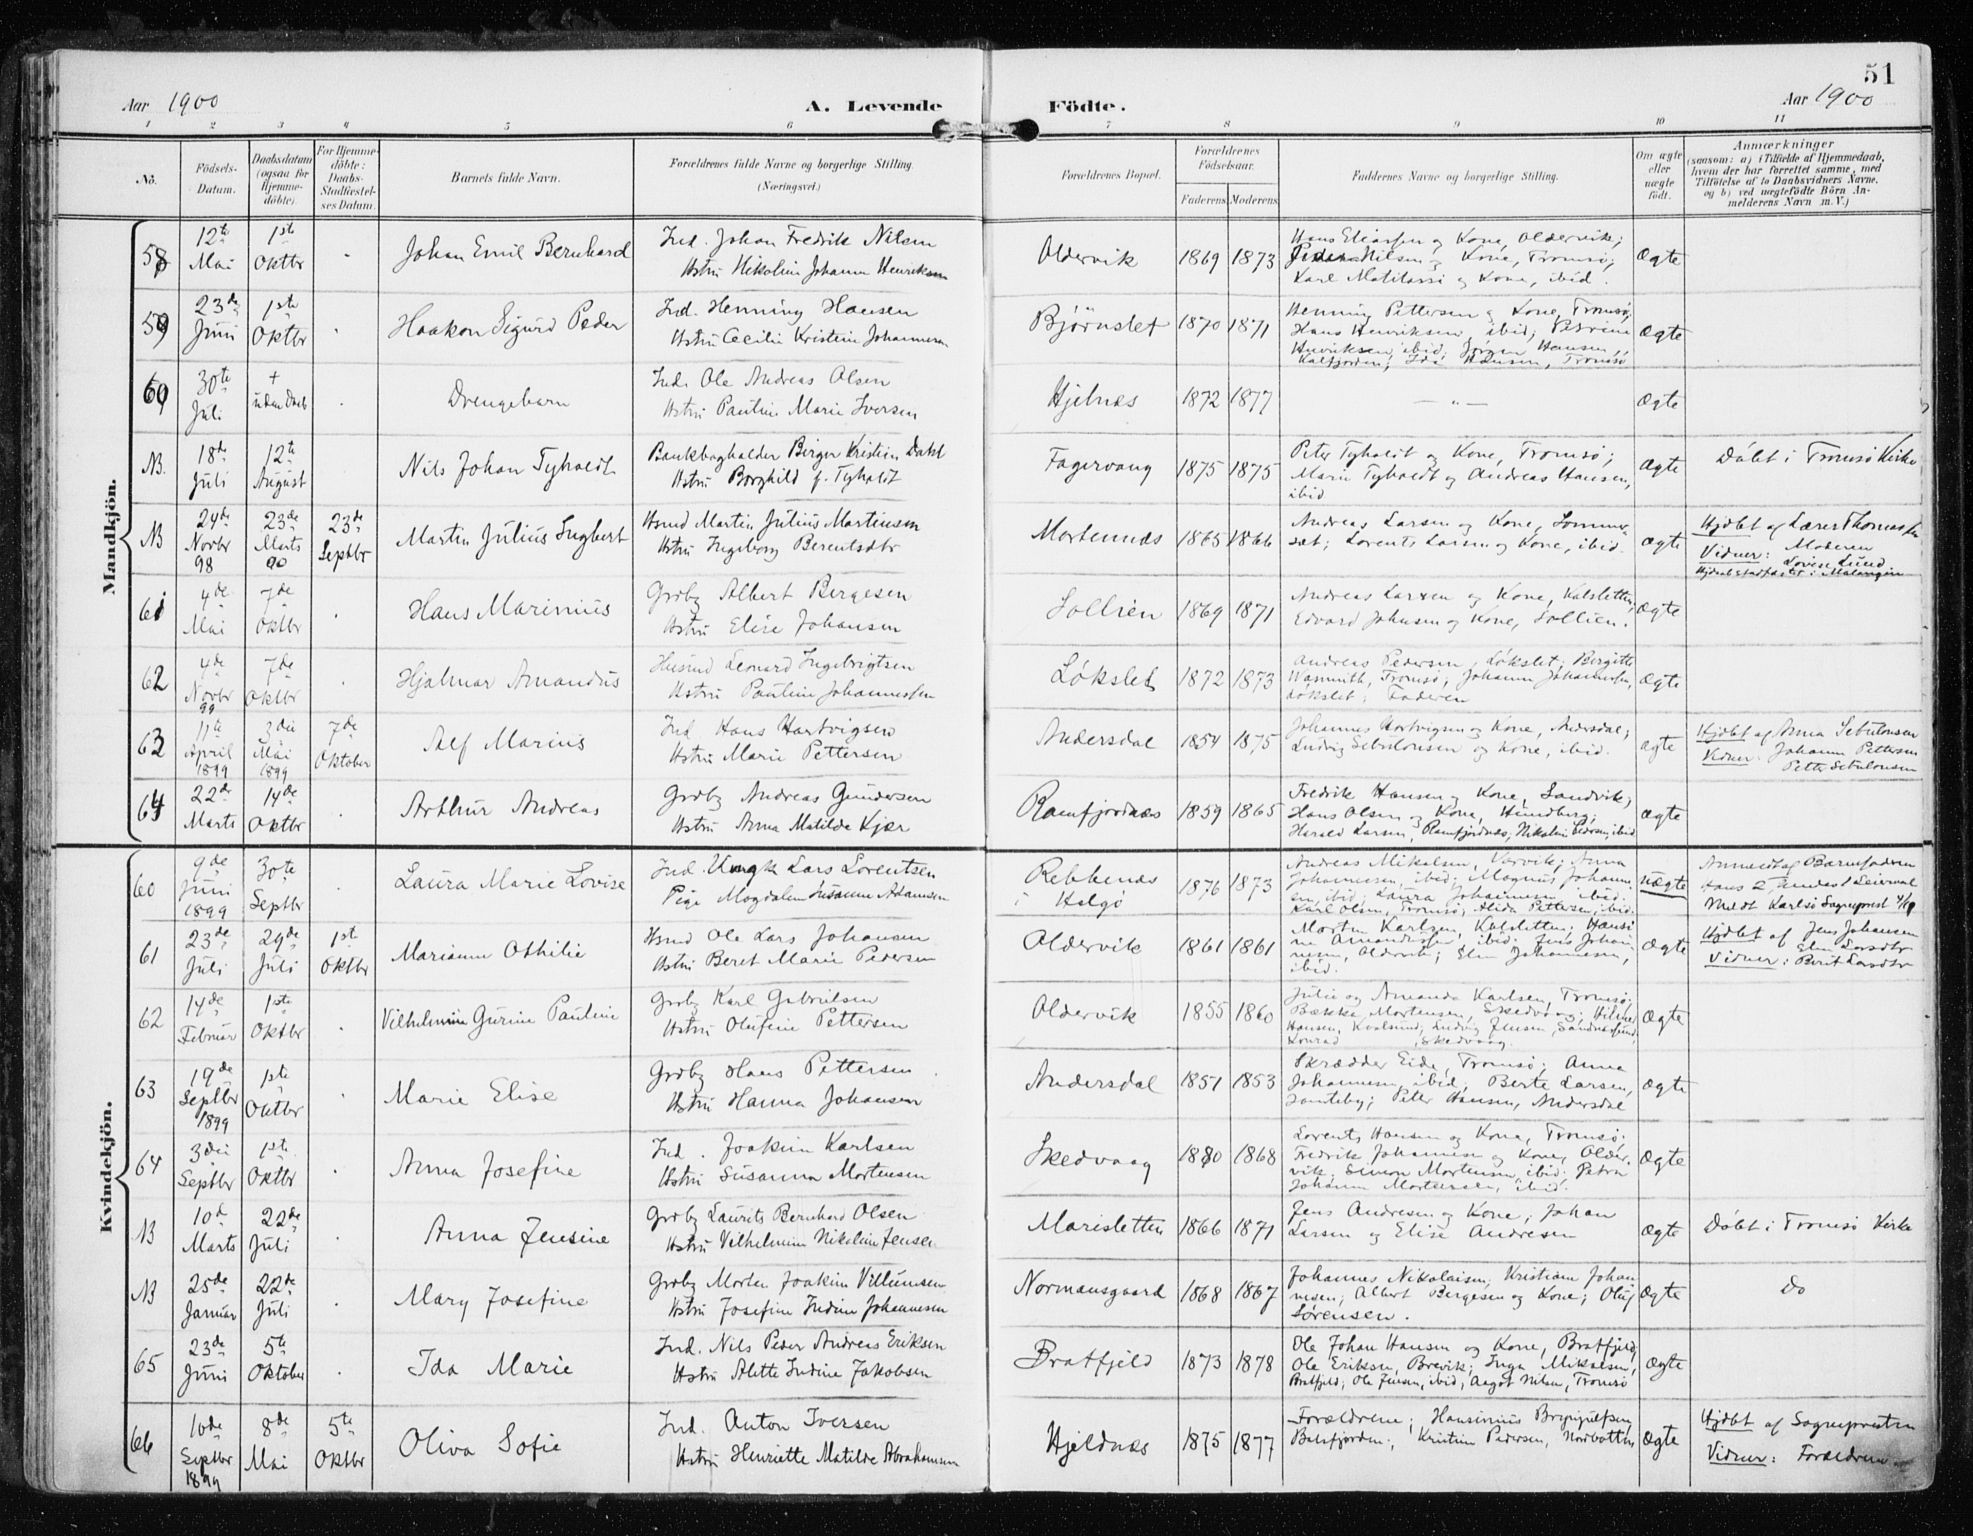 51
Aar 1900
A. Levende
Födte.
Aar 1900
1 2 3 4 5 6 7 8 9 10 11
No.
Födsels-
Datum.
Daabsdatum
(ogsaa for
Hjemme-
döbte).
For Hjemme-
döbte:
Daabs-
Stadfæstel-
ses Datum.
Barnets fulde Navn.
Forældrenes fulde Navne og borgerlige Stilling.
(Næringsvei.)
Forældrenes Bopæl.
Forældrenes
Födselsaar.
Faderens. Moderens.
Faddernes Navne og borgerlige Stilling.
Om ægte
eller
uægte
födt.
Anmærkninger
(saasom: a) i Tilfælde af Hjemmedaab,
hvem der har forrettet samme, med
Tilföielse af to Daabsvidners Navne,
og b) ved uægtefödte Börn An-
melderens Navn m. V.)
Mandkjön.
58
12te Mai
1ste Oktbr
Johan Emil Bernhard
Ind. Johan Fredrik Nilsen
Hstru Nikoline Johanna Henriksen
Oldervik
1869 1873
Hans Eliassen og Kone, Oldervik;
Peder Nilsen og Kone, Tromsø;
Karl og Kone, ibid.
ægte
59
23de Juni
1ste Oktbr
Haakon Sigurd Peder
Ind. Henning Hansen
Hstru Cecilie Kristine Johannesen
Bjørnslet
1870 1871
Henning Pettersen og Kone, Tromsø,
Hans Henriksen, ibid; Petrine
Henriksen, ibid; Jørgen Hansen,
Kalfjorden; Ida Hansen, Tromsø
ægte
60
30te Juli
+ uden Daab
Drengebarn
Ind. Ole Andreas Olsen
Hstru Pauline Marie Iversen
Hjelnæs
1872 1877
— " —
ægte
NB.
18de Juli
12te August
Nils Johan Tyholdt
Bankbogholder Birger Kristian Dahl
Hstru Borghild f. Tyholdt
Fagervang
1875 1875
Peter Tyholdt og Kone, Tromsø;
Marie Tyholdt og Andreas Hansen,
ibid
ægte
Døbt i Tromsø Kirke
NB
24de Novbr 98
23de Marts
23de Septbr
Martin Julius Ingbert
Hsmd Martin Julius Martinsen
Hstru Ingeborg Berentsdtr
Mortennæs
1865 1866
Andreas Larsen og Kone, Sommer-
sæt; Lorents Larsen og Kone, ibid.
ægte
Hjdbt af Lærer Thomassen
Vidner: Moderen
Lovise Lund
Hjdaab stadfæstet i Malangen
61
4de Mai
7de Oktbr
Hans Marinius
Grdbr Albert Bergesen
Hstru Elise Johansen
Sollien
1869 1871
Andreas Larsen og Kone, Kalsletten,
Edvard Johnsen og Kone, Sollien.
ægte
62
4de Novbr 99
7de Oktbr
Hjalmar Amandus
Husmd Leonard Ingebrigtsen
Hstru Pauline Johannessen
Løkslet
1872 1873
Andreas Pedersen, Løkslet; Bergitte
Wasmuth, Tromsø; Johanna Johannessen,
Løkslet; Faderen
ægte
63
11te April 1899
3die Mai 1899
7de Oktober
Alf Marius
Ind. Hans Hartvigsen
Hstru Marie Pettersen
Andersdal
1854 1875
Johannes Hartvigsen og Kone, Andersdal;
Ludvig Sebulonsen og Kone, ibid.
ægte
Hjdbt af Anna Sebulonsen
Vidner: Johanna Pettersen
Petter Sebulonsen
64
22de Marts
14de Oktbr
Arthur Andreas
Grdbr Andreas Gundersen
Hstru Anna Matilde Kjær
Ramfjordnæs
1859 1865
Fredrik Hansen og Kone, Sandvik;
Hans Olsen og Kone, Hundberg;
Harald Larsen, Ramfjordnæs, Nikoline Pedersen, ibid
ægte
Kvindekjön.
60
9de Juni 1899
30te Septbr
Laura Marie Lovise
Ind. Ungk Lars Lorentsen
Pige Magdalena Susanna Adamsen
Rebbenæs i Helgø
1876 1873
Andreas Mikalsen, Vervik; Anna
Johannesen, ibid; Magnus Johanne-
sen, ibid; Laura Johannesen, ibid.
Karl Olsen, Tromsø; Alida Pettersen, ibid.
uægte
Anmeldt af Barnefaderen
hans 2det, hendes 1ste Leiermaal
Meldt Karlsø Sogneprest
61
23de Juli
29de Juli
1ste Oktbr
Marianne Othilie
Hsmd Ole Lars Johansen
Hstru Beret Marie Pedersen
Oldervik
1861 1861
Morten Karlsen, Kalsletten; Hansi-
ne Amandusen, ibid; Jens Johan-
nesen, Oldervik; Elen Johannesen,
ibid.
ægte
Hjdbt af Jens Johansen
Vidner: Elen Larsdtr
Berit Larsdtr
62
14de Februar
1ste Oktbr
Vilhelmine Gurine Pauline
Grdbr Karl Gabrielsen
Hstru Olufine Pettersen
Oldervik
1855 1860
Julie og Amanda Karlsen, Tromsø;
Bække Mortensen, Skedvaag; Hilmar
Hansen, Kvalsund; Ludvig Jensen,
Konrad , Skedvaag.
ægte
63
19de Septbr 1899
1ste Oktbr
Marie Elise
Grdbr Hans Pettersen
Hstru Hanna Johansen
Andersdal
1851 1853
Skrædder Eide, Tromsø; Anna
Johannesen, ibid; Berte Larsen,
Tomteby; Peter Hansen, Andersdal
ægte
64
3die Septbr
1ste Oktbr
Anna Josefine
Ind. Joakim Karlsen
Hstru Susanna Mortensen
Skedvaag
1870 1868
Lorents Hansen og Kone, Tromsø;
Fredrik Johannesen og Kone, Older-
vik; Simon Mortensen, ibid; Petra
Johanna Mortensen, ibid.
ægte
NB
10de Marts
22de Juli
Anna Jensine
Grdbr Laurits Bernhard Olsen
Hstru Vilhelmine Nikoline Jensen
Marisletten
1866 1871
Jens Andresen og Kone; Johan
Larsen og Elise Andresen
ægte
Døbt i Tromsø Kirke
NB
25de Januar
22de Juli
Mary Josefine
Grdbr Morten Joakim Villumsen
Hstru Josefine Indine Johannesen
Normansgaard
1868 1867
Johannes Nikolaisen; Kristiane Johan-
nesen; Albert Bergesen og Kone; Oluf
Sørensen.
ægte
Do
65
23de Juni
5te Oktober
Ida Marie
Ind. Nils Peder Andreas Eriksen
Hstru Alette Indine Jakobsen
Bratfjeld
1873 1878
Ole Johan Hansen og Kone, Bratfjeld;
Ole Eriksen, Brevik; Inga Mikalsen,
Bratfjeld; Ole Jensen, ibid; Aagot Nilsen, Tromsø
ægte
66
10de Septbr 1899
8de Mai
5te Oktbr
Oliva Sofie
Ind. Anton Iversen
Hstru Henriette Matilde Abrahamsen
Hjeldnæs
1875 1877
Forældrene; Hansinius Brynjulfsen
Balsfjorden; Kristine Pedersen, Nordbotten
ægte
Hjdbt af Sognepresten
Vidner: Forældrene